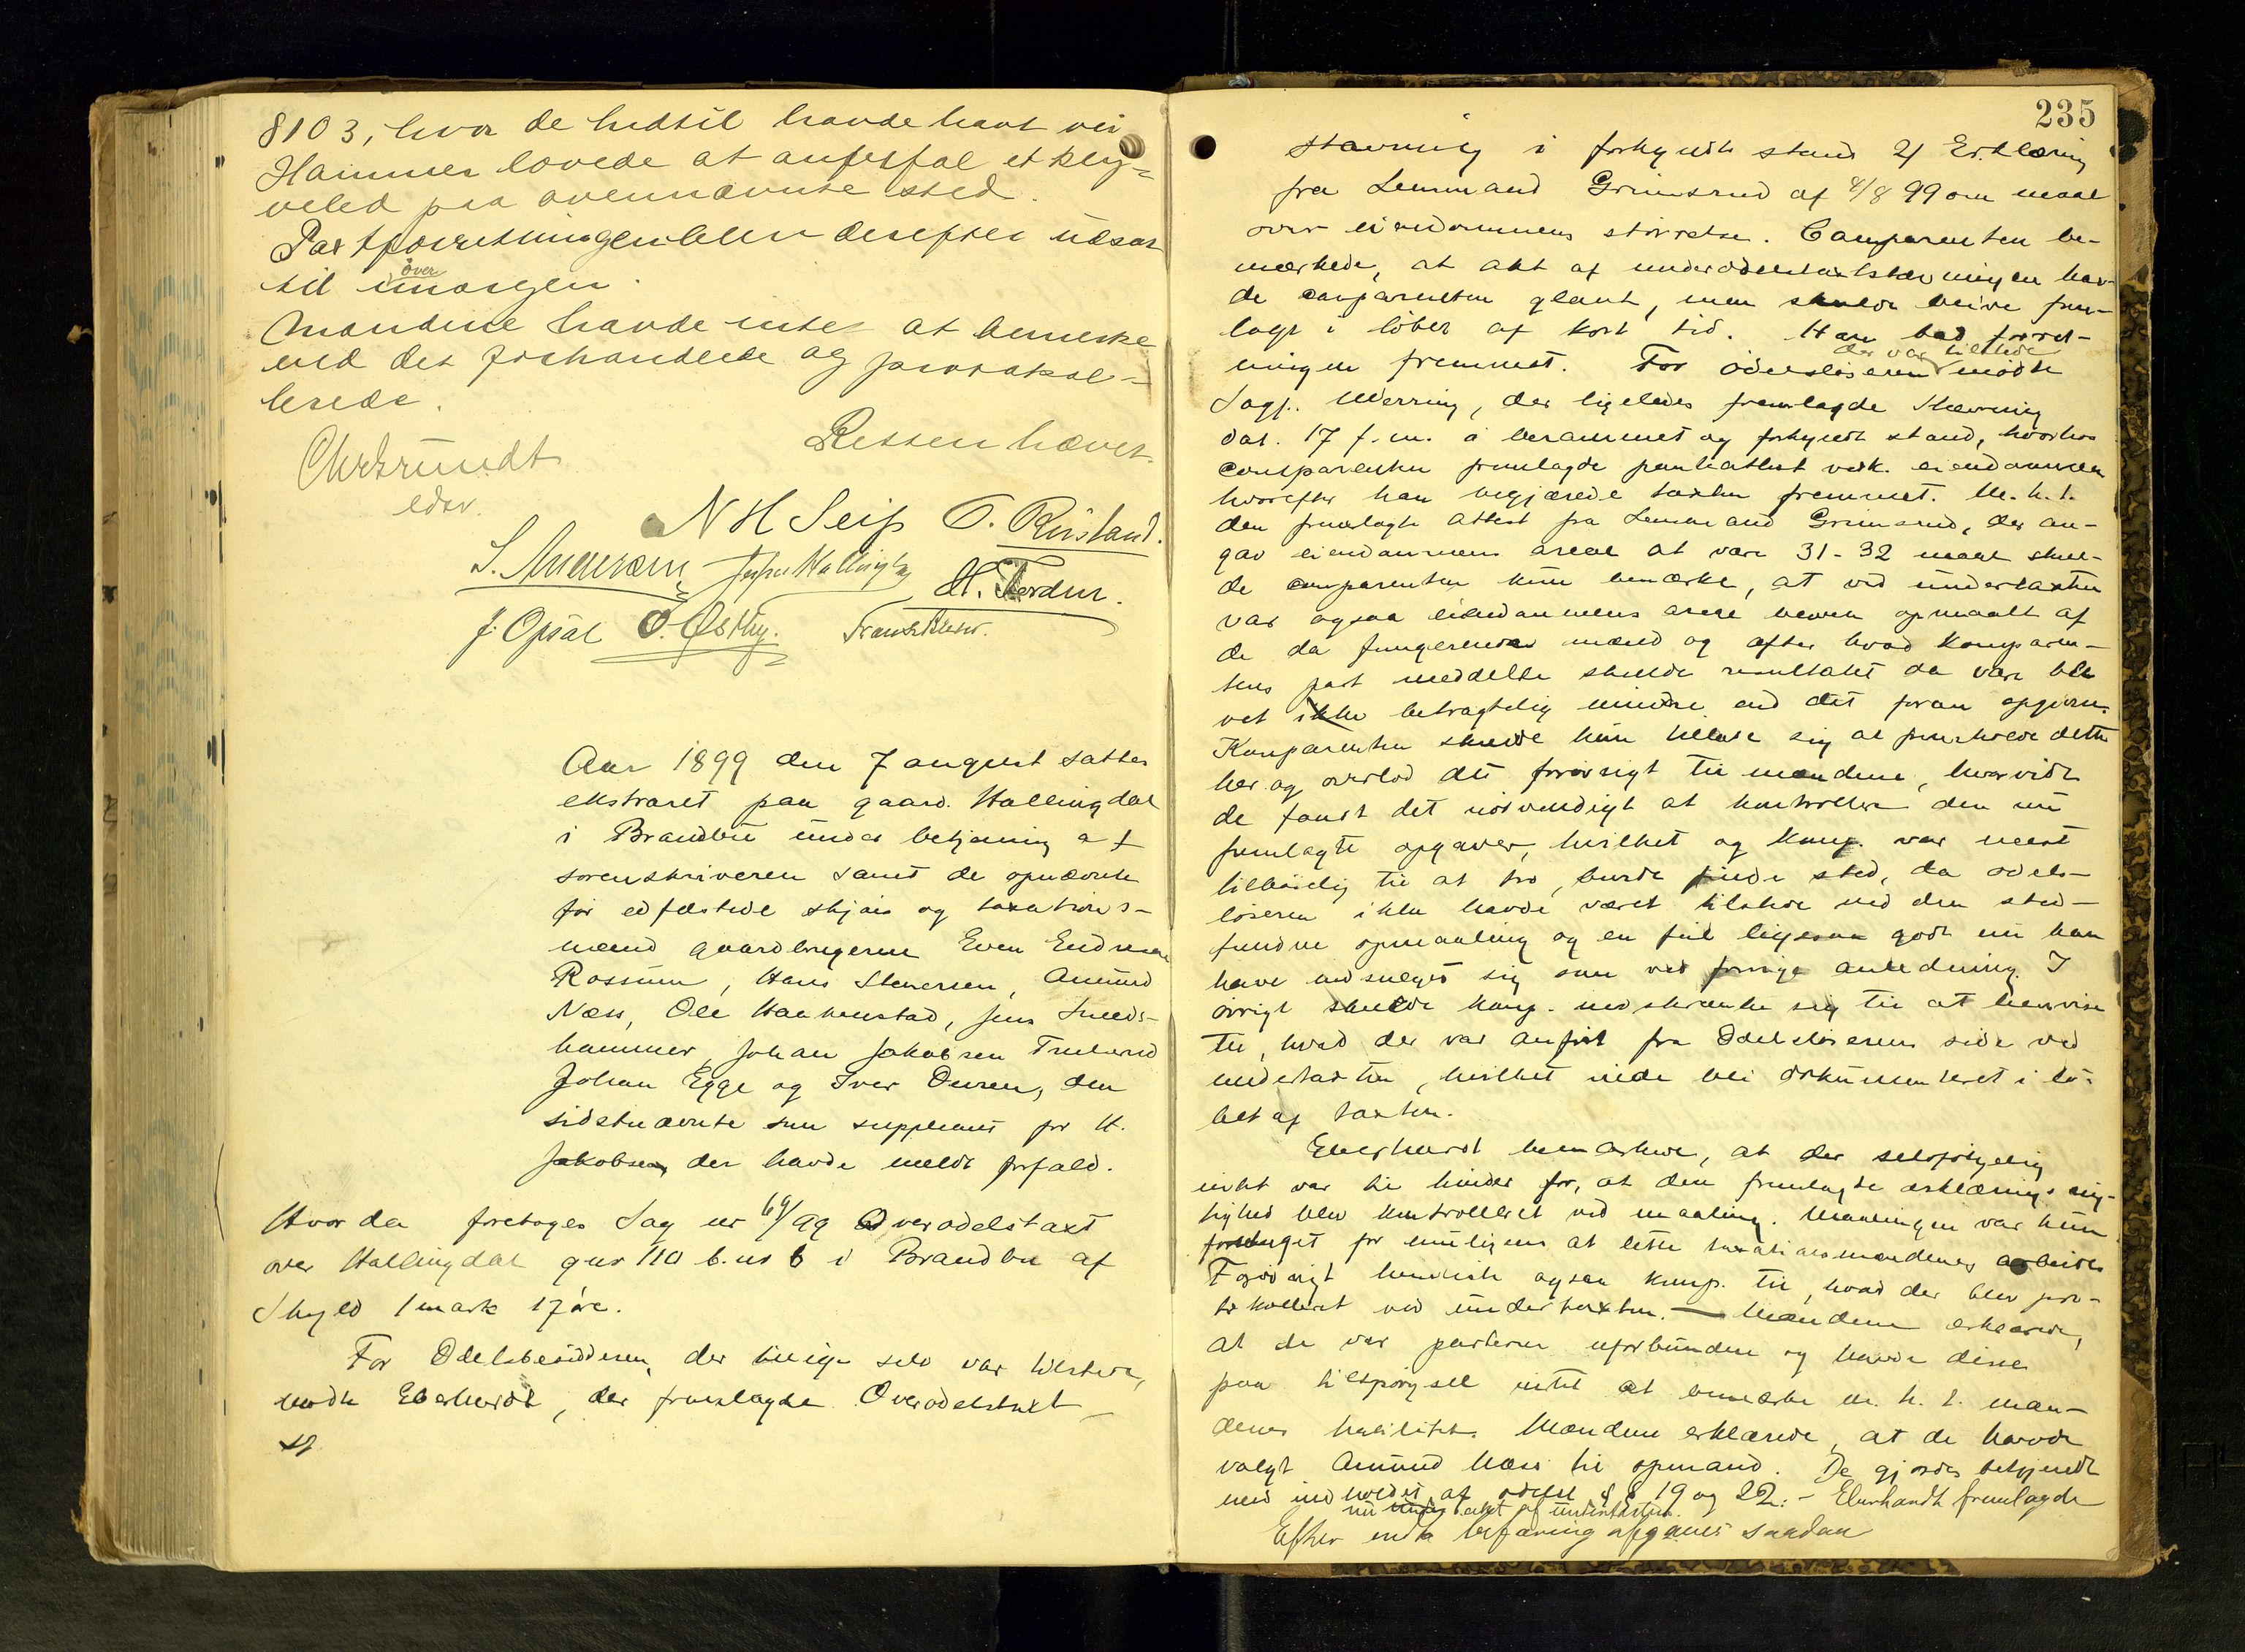 8103, hvor de hidtil havde havt vei
Hammer lovede at anbefal et Leg-
veled paa ovennævnte sted.
Pastforretningen blev derefter udsat
til over imorgen.
Mændene havde intet at bemerke
ved det forhandlede og protokol-
lerede.
Retten hævet.
Chr Brundt
edsv.
N H Seip O. Rustand.
S. Andersen Hallingby H. Tordur.
J. Opsal O. Østby. Frants
Aar 1899 den 7 august sattes
ekstraret paa gaard. Hallingdal
i Brandbu under betjening af
sorenskriveren samt de opnævnte
før edfæstede skjøns og taxations-
mænd gaardbrugerne Even Endresen
Rossum, Hans Stenersen, Amund
Næss, Ole Haakenstad, Jens Smeds-
hammer, Johan Jakobsen Trulserud
Johan Egge og Iver Duren, den
sidstnævnte som suppleant for H.
Jakobsen, der havde meldt forfald.
Hvor da foretoges Sag nr 69/99 Overodelstaxt
over Hallingdal gno 110 b. no 6 i Brandbu af
Skyld 1 mark 17 øre.
For Odelsbesidderen, der tillige selv var tilstede,
mødte Eberhardt, der fremlagde Overodelstaxt-
st
235
stævning i forkyndt stand 2) Erklæring
fra Lensmand Grimsrud af 4/8 99 om maal
over eiendommens størrelse. Comparenten be-
mærkede, at akt af underodelstaxtstævningen hav-
de comparenten glemt, men skulde blive frem-
lagt i løbet af kort tid. Han bad forret-
ningen fremmet. For odelsløseren der var tilstede mødte
Sagf. Werring, der ligeledes fremlagde Stævning
dat. 17 f. m. i berammet og forkyndt stand, hvorhos
comparenten fremlagde panteattest vedk. eiendommen
hvorefter han begjærede taxten fremmet. M. h. t.
den fremlagte attest fra Lensmand Grimsrud, der an-
gav eiendommens areal at være 31-32 maal skul-
de comparenten kun bemærke, at ved undertaxten
var ogsaa eiendommens areal bleven opmaalt af
de da fungerende mænd og efter hvad komparen-
tens part meddelte skulde resultatet da være ble-
vet ikke betragtelig mindre end det foran opgivne.
Komparenten skulde kun tillade sig at fremholde dette
her og overlod det forøvrigt til mændene, hvorvidt
de fandt det nødvendigt at kontrollere den nu
fremlagte opgaver, hvilket og komp. var mest
tilbøielig til at tro, burde finde sted, da odels-
løseren ikke havde været tilstede ved den sted-
fundne opmaaling og en feil ligesaa godt nu kan
have indsneget sig som ved forrige anledning. I
øvrigt skulde komp. indskrænke sig til at henvise
til, hvad der var anført fra Odelsløserens side ved
undertaxten, hvilket vilde bli dokumenteret i lø-
bet af taxten.
Eberhardt bemærkede, at der selvfølgelig
intet var til hinder for, at den fremlagte erklærings rig-
tighed blev kontrolleret ved maaling. Maalingen var kun
foretaget for muligens at lette taxationsmændenes arbeide
Forøvrigt henviste ogsaa komp. til, hvad der blev pro-
tokolleret ved undertaxten. — Mændene erklærede,
at de var parterne uforbundne og havde disse
paa tilspørgsel intet at bemærke m. h. t. mæn-
denes habilitet. Mændene erklærede, at de havde
valgt Amund Næss til opmand. De gjordes bekjendt
med indholdet af odelsl §§ 19 og 22. - Eberhardt fremlagde
nu akt af undertaxten.
Efter endt befaring afgaves saadan